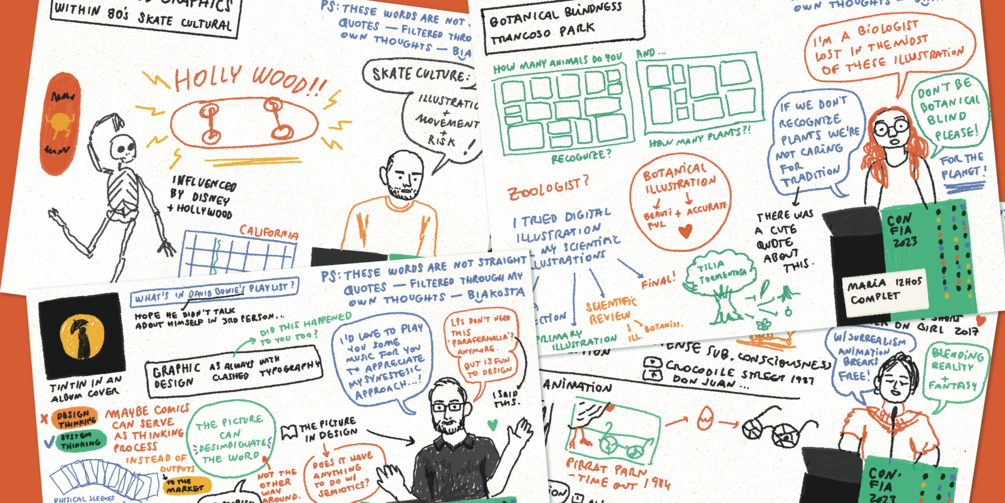 GRAPHICS
WITHIN 80'S SKATE CULTURAL
PS: THESE WORDS ARE NOT
QUOTES – FILTERED THRO
OWN THOUGHTS – BLA
HOLLY WOOD!!
SKATE CULTURE:
ILLUSTRATI
+
MOVEMENT
+
RISK
!
INFLUENCED
BY DISNEY
+ HOLLYWOOD
CALIFORNIA
BOTANICAL BLINDNESS
TRANCOSO PARK
OWN THOUGHTS –
HOW MANY ANIMALS DO YOU
RECOGNIZE?
AND...
HOW MANY PLANTS?!
I'M A BIOLOGIST
LOST IN THE MIDST
OF THESE ILLUSTRATION
IF WE DON'T
RECOGNIZE
PLANTS WE'RE
NOT CARING
FOR
TRADITION
DON'T BE
BOTANICAL
BLIND
PLEASE!
FOR THE
PLANET!
ZOOLOGIST?
BOTANICAL
ILLUSTRATION
BEAUTI + ACCURATE
FUL
I TRIED DIGITAL
ILLUSTRATION
MY SCIENTIFIC
LUSTRATIONS
CTION
PRIMARY
ILLUSTRATION
SCIENTIFIC
REVIEW
ILL
BOTANIST.
FINAL!
TILIA
TORMENTOSA
THERE WAS
A CUTE
QUOTE
ABOUT
THIS.
CON
FIA
2023
MARIA 12H05
COMPLET
PS: THESE WORDS ARE NOT STRAIGHT
QUOTES – FILTERED THROUGH MY
OWN THOUGHTS – BLAKOSTA
WHAT'S IN DAVID BOWIE'S PLAYLIST?
HOPE HE DIDN'T TALK
ABOUT HIMSELF IN 3RD PERSON...
DID THIS HAPPENED
TO YOU TOO?
GRAPHIC AS ALWAYS WITH
DESIGN CLASHED TYPOGRAPHY
TINTIN IN AN
ALBUM COVER
X DESIGN
THINKING
SYSTEM
THINKING
MAYBE COMICS
CAN SERVE
AS THINKING
PROCESS
INSTEAD OF
OUTPUTS
TO THE
MARKET
PHYSICAL SLEEVES
THE PICTURE
CAN
DESIMBIGUATE
THE WORD
NOT THE
OTHER
WAY
AROUND.
THE PICTURE
IN DESIGN
DOES IT HAVE
ANYTHING
TO DO W/
SEMIOTICS?
I'D LOVE TO PLAY
YOU SOME
MUSIC FOR YOU
TO APPRECIATE
MY SYNESTESIC
APPROACH...?
LPS DON'T NEED
THIS
"PARAFERNALIA"?
ANYMORE.
BUT IS FUN
TO DESIGN
I SAID
THIS.
ENSE SUB. CONSCIOUSNESS
CROCODILE STREET 1987
DON JUAN...
ON GIRL 2017
ANIMATION
PIRRAT PARN
TIME OUT 1984
W/ SURREALISM
ANIMATION
BREAKS
FREE!
BLENDING
REALITY
+
FANTASY
CON.
FIA
2023